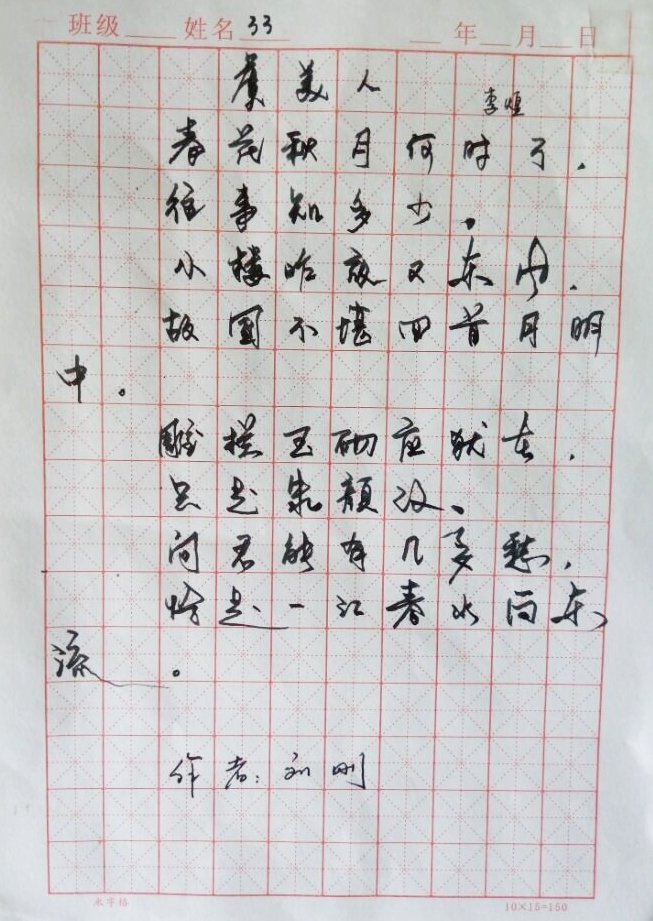 班级 姓名 33 年 月 日
虞美人
李煜
春花秋月何时了,
往事知多少。
小楼昨夜又东风,
故国不堪回首月明
中。
雕栏玉砌应犹在,
只是朱颜改、
问君能有几多愁,
恰是一江春水向东
流。
作者:刘刚
米字格 10×15=150